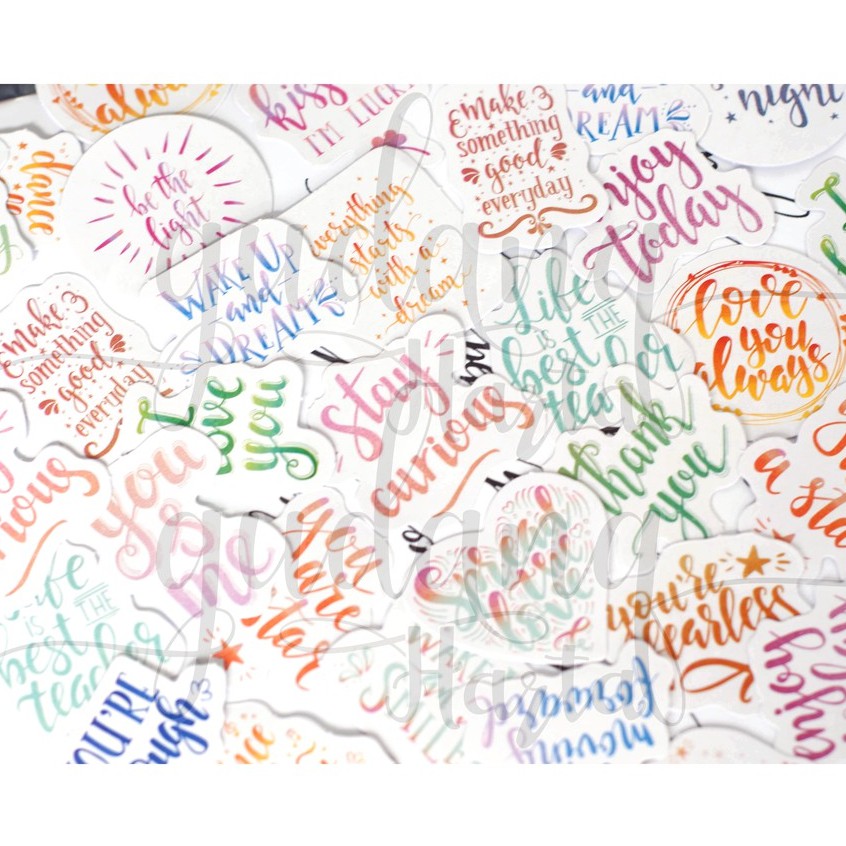 always
kiss
I'M LUCKY
make
something
good
everyday
and
DREAM
night
dance
be the
light
everything
starts
with a
dream
enjoy
today
WAKE UP
and
DREAM
Life
IS THE
best
teacher
love
you
always
make
something
good
everyday
I
love
you
Stay
curious
thank
you
curious
you
is
me
you
are
star
Spread
love
you're
fearless
a star
Life
IS THE
best
teacher
YOU'RE
enough
SMILE
moving
forward
enjoy
gudang
Hazta
gudang
Hazta